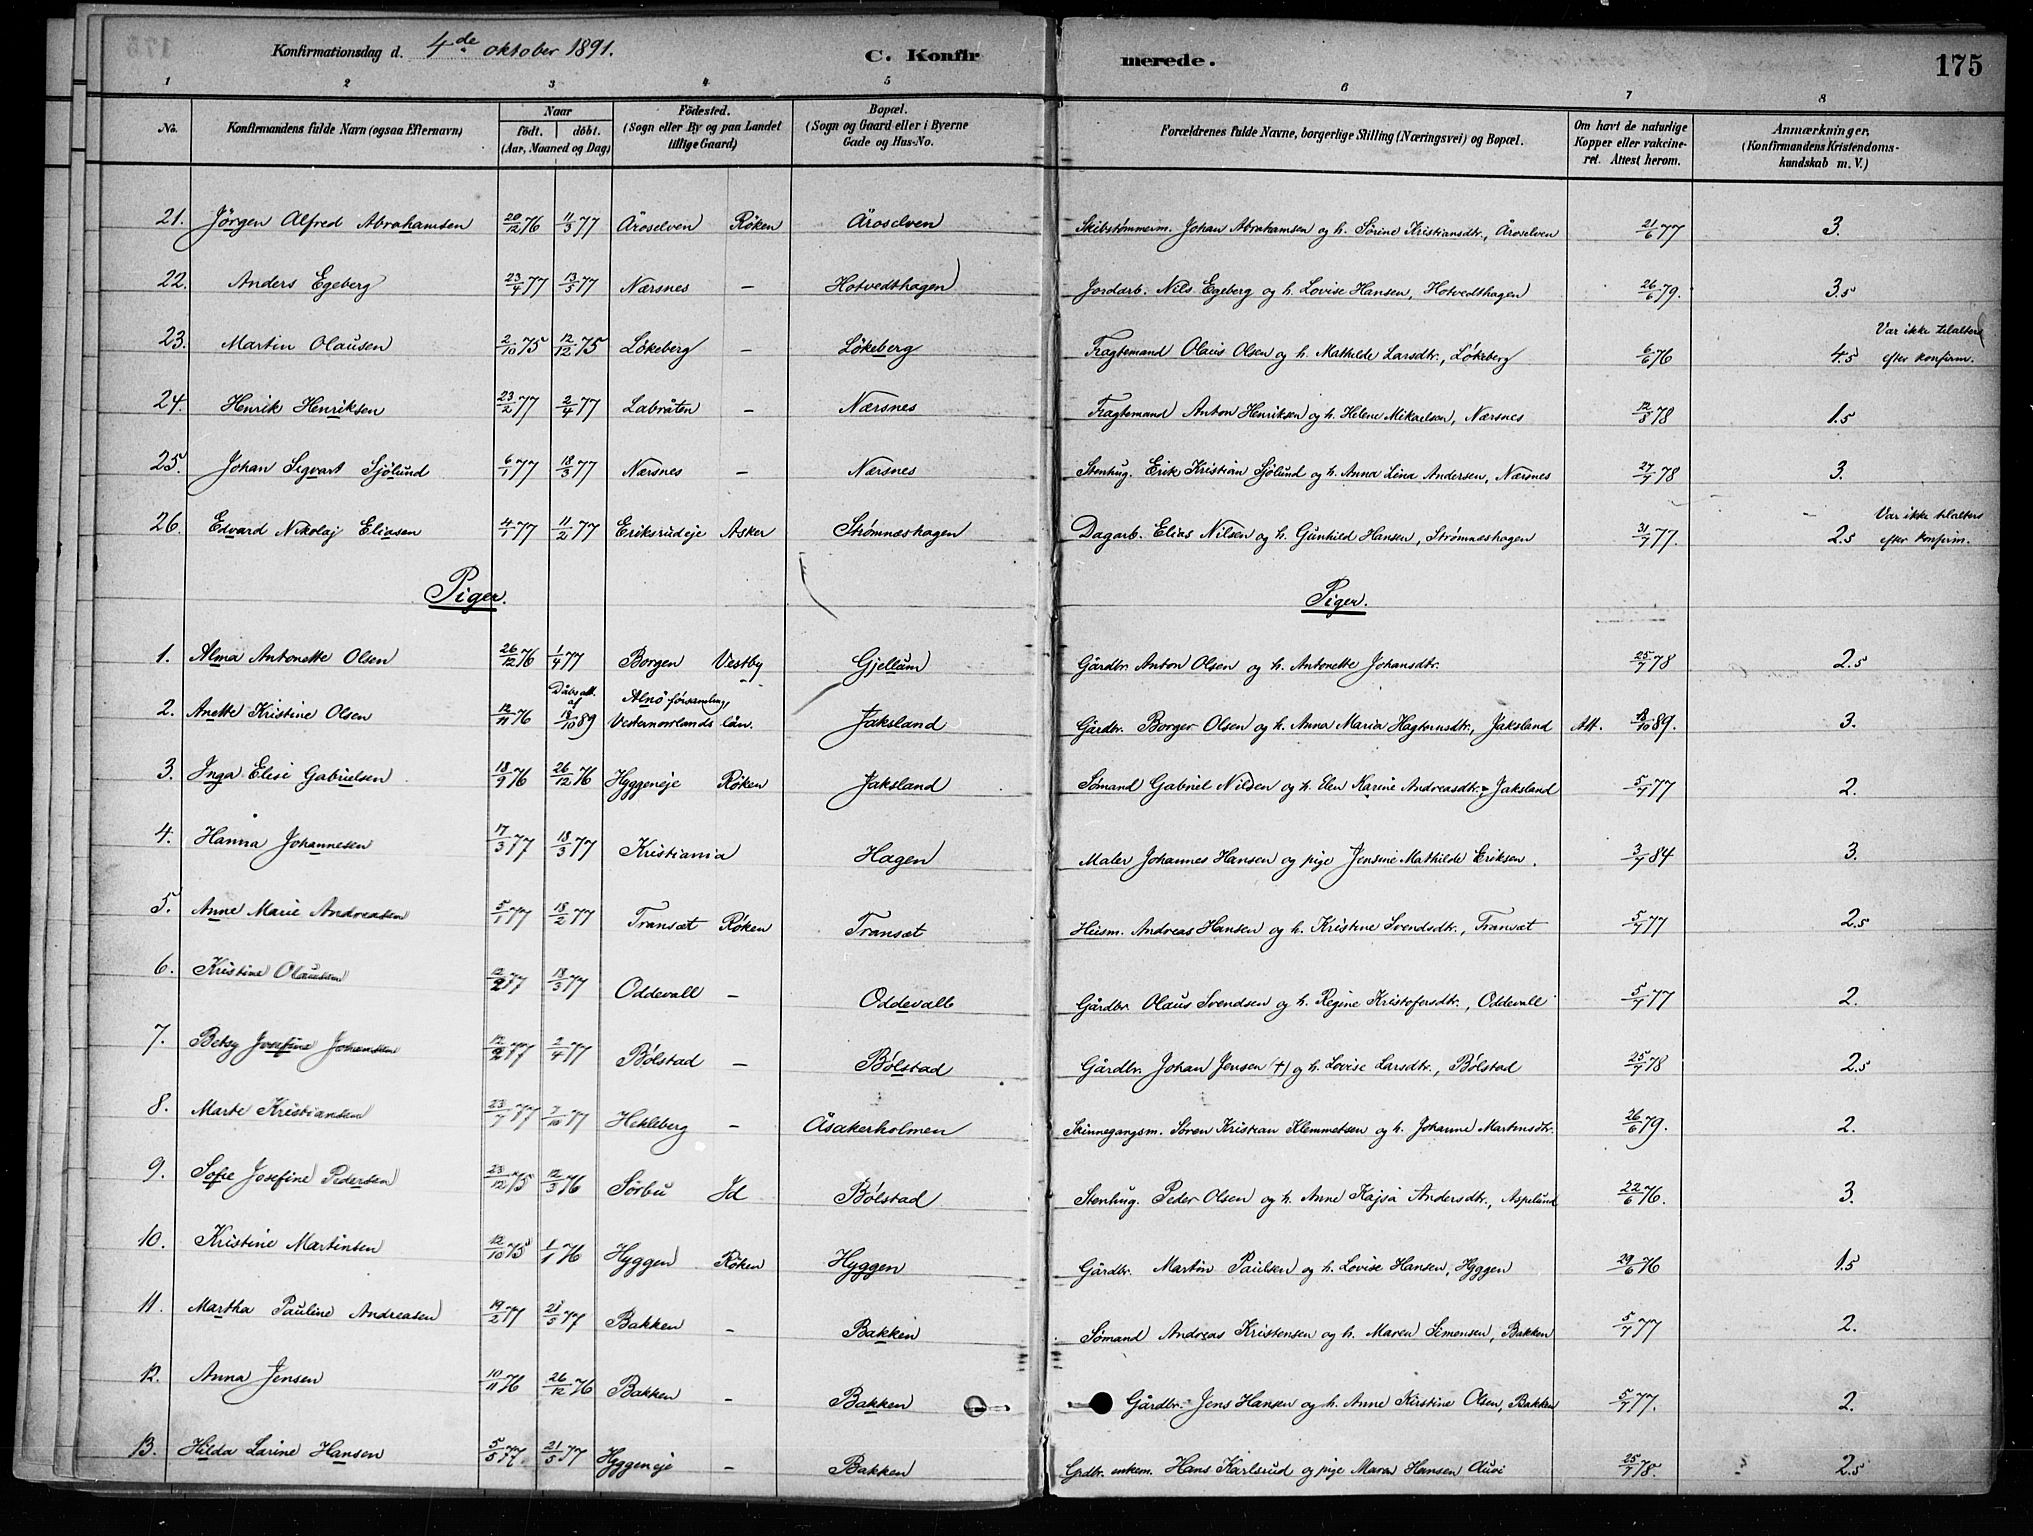 Konfirmationsdag d. 4de oktober 1891.
C. Konfirmerede.
175
1 2 3 4 5 6 7 8
No. Konfirmandens fulde Navn (ogsaa Efternavn) Naar födt. döbt. (Aar, Maaned og Dag) Födested. (Sogn eller By og paa Landet tillige Gaard) Bopæl. (Sogn og Gaard eller i Byerne Gade og Hus-No. Forældrenes fulde Navne, borgerlige Stilling (Næringsvei) og Bopæl. Om havt de naturlige Kopper eller vakcineret. Attest herom. Anmærkninger, (Konfirmandens Kristendomskundskab m. V.)
21. Jörgen Alfred Abrahamsen 20/12 76 11/3 77 Åroselven Röken Åroselven Skibstømmerm. Johan Abrahamsen og h. Sörine Kristiansdtr., Åroselven 21/6 77 3.
22. Anders Egeberg 23/4 77 13/5 77 Nærsnes – Hotvedthagen Jordarb. Nils Egeberg og h. Lovise Hansen, Hotvedthagen 26/6 79. 3.5
23. Martin Olausen 2/10 75 12/12 75 Lökeberg – Lökeberg Fragtemand Olaus Olsen og h. Mathilde Larsdtr., Lökeberg 6/6 76 4.5 Var ikke tilalters efter konfirm.
24. Henrik Henriksen 23/2 77 2/4 77 Labråten – Nærsnes Fragtemand Anton Henriksen og h. Helene Mikaelsen, Nærsnes 12/8 78 1.5
25. Johan Sigvart Sjölund 6/1 77 18/3 77 Nærsnes – Nærsnes Stenhug. Erik Kristian Sjölund og h. Anna Lina Andersen, Nærsnes 27/7 78 3.
26. Edvard Nikolaj Eliasen 4/1 77 11/2 77 Eriksrudeje Asker Strømnæshagen Dagarb. Elias Nilsen og h. Gunhild Hansen, Strømneshagen 31/7 77. 2.5 Var ikke tilalters efter konfirm.
Piger. Piger.
1. Alma Antonette Olsen 26/12 76 1/4 77 Borgen Vestby Gjellum Gårdbr. Anton Olsen og h. Antonette Johansdtr. 25/7 78 2.5
2. Anette Kristine Olsen 12/11 76 Dåbsatt. af 18/10 89 Alnö församling, Vesternorrlands län. Jaksland Gårdbr. Borger Olsen og h. Anna Maria Hagtornsdtr., Jaksland Att. 18/10 89. 3.
3. Inga Elise Gabrielsen 18/9 76 26/12 76 Hyggeneje Röken Jaksland Sömand Gabriel Nilsen og h. Elen Karine Andreasdtr., Jaksland 5/7 77 2.
4. Hanna Johannesen 17/3 77 18/3 77 Kristiania Hagen Maler Johannes Hansen og pige Jensine Mathilde Eriksen. 3/7 84 3.
5. Anne Marie Andreasen 5/1 77 18/2 77 Transæt Röken Transæt Husm. Andreas Hansen og h. Kristine Svendsdtr., Transæt 5/7 77 2.5
6. Kristine Olausen 12/2 77 18/3 77 Oddevall – Oddevall Gårdbr. Olaus Svendsen og h. Regine Kristofersdtr., Oddevall 5/7 77 2.
7. Betzy Josefine Johansen 12/2 77 2/4 77 Bölstad – Bölstad Gårdbr. Johan Jensen (†) og h. Lovise Larsdtr., Bölstad 25/7 78 2.5
8. Marte Kristiansen 23/7 77 7/10 77 Hekleberg – Åsakerholmen Skinnegangsm. Sören Kristian Klemmetsen og h. Johanne Martinsdtr. 26/6 79. 2.
9. Sofie Josefine Pedersen 23/12 75 12/3 76 Sörbu Id Bölstad Stenhug. Peder Olsen og h. Anne Kajsa Andersdtr., Aspelund 22/6 76. 3.
10. Kristine Martinsen 12/10 75 1/1 76 Hyggen Röken Hyggen Gårdbr. Martin Paulsen og h. Lovise Hansen, Hyggen 29/6 76 1.5
11. Martha Pauline Andreasen 19/2 77 21/5 77 Bakken – Bakken Sömand Andreas Kristensen og h. Maren Simensen, Bakken 5/7 77 2.
12. Anna Jensen 10/11 76 26/12 76 Bakken – Bakken Gårdbr. Jens Hansen og h. Anne Kirstine Olsen, Bakken 5/7 77. 2.
13. Hilda Larine Hansen 5/5 77 21/5 77 Hyggeneje – Bakken Grdbr. enkem. Hans Karlsrud og pige Maren Hansen Auvi 25/7 78. 2.5